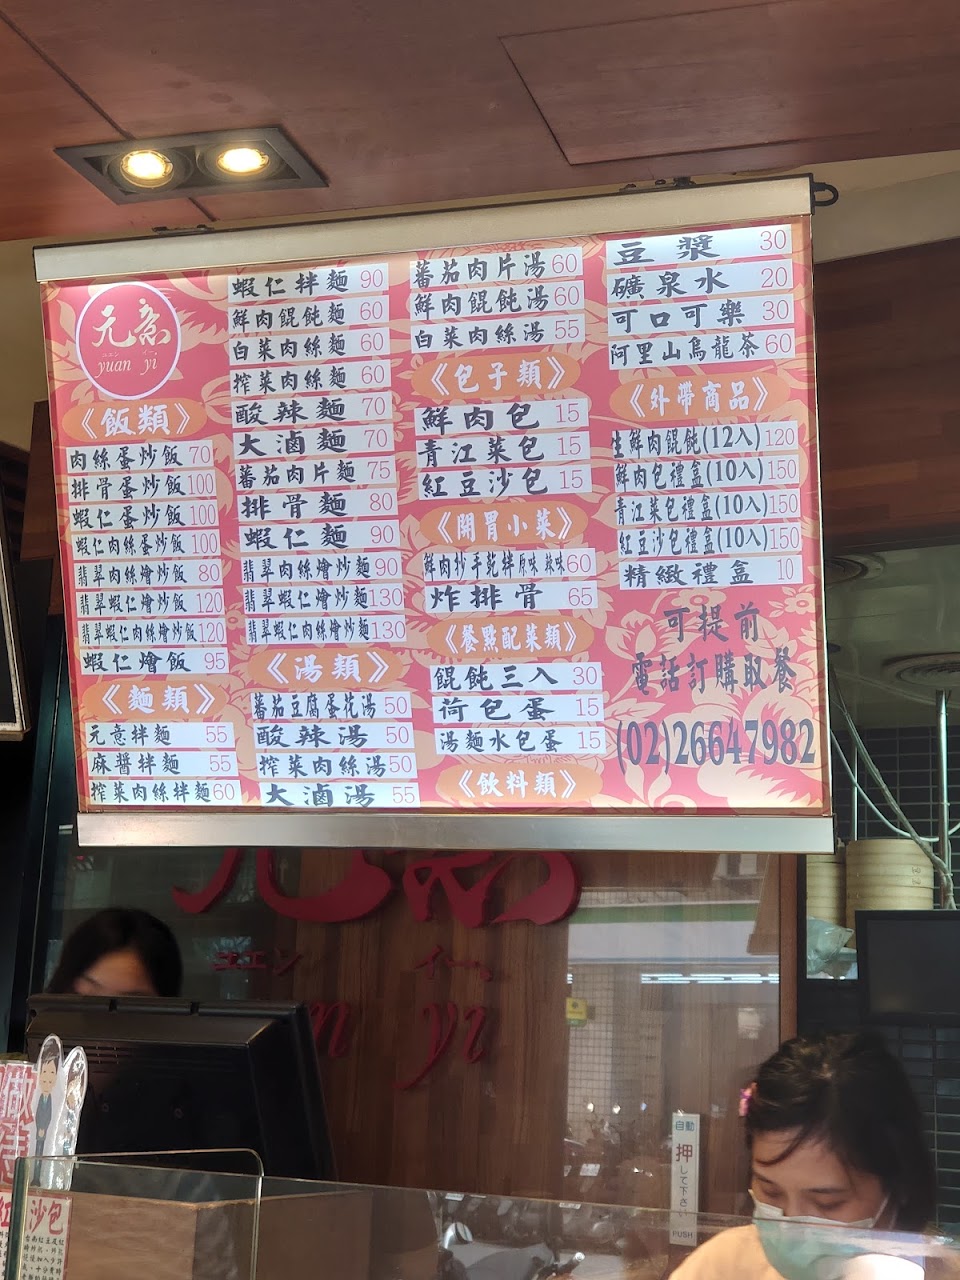 元意
ユエン イー
yuan yi
《飯類》
肉絲蛋炒飯 70
排骨蛋炒飯 100
蝦仁蛋炒飯 100
蝦仁肉絲蛋炒飯 100
翡翠肉絲燴炒飯 80
翡翠蝦仁燴炒飯 120
翡翠蝦仁肉絲燴炒飯 120
蝦仁燴飯 95
《麵類》
元意拌麵 55
麻醬拌麵 55
搾菜肉絲拌麵 60
蝦仁拌麵 90
鮮肉餛飩麵 60
白菜肉絲麵 60
搾菜肉絲麵 60
酸辣麵 70
大滷麵 70
蕃茄肉片麵 75
排骨麵 80
蝦仁麵 90
翡翠肉絲燴炒麵 90
翡翠蝦仁燴炒麵 130
翡翠蝦仁肉絲燴炒麵 130
《湯類》
蕃茄豆腐蛋花湯 50
酸辣湯 50
搾菜肉絲湯 50
大滷湯 55
蕃茄肉片湯 60
鮮肉餛飩湯 60
白菜肉絲湯 55
《包子類》
鮮肉包 15
青江菜包 15
紅豆沙包 15
《開胃小菜》
鮮肉抄手乾拌原味 辣味 60
炸排骨 65
《餐點配菜類》
餛飩三入 30
荷包蛋 15
湯麵水包蛋 15
《飲料類》
豆漿 30
礦泉水 20
可口可樂 30
阿里山烏龍茶 60
《外帶商品》
生鮮肉餛飩(12入) 120
鮮肉包禮盒(10入) 150
青江菜包禮盒(10入) 150
紅豆沙包禮盒(10入) 150
精緻禮盒 10
可提前
電話訂購取餐
(02)26647982
ユエン イー
yi
自動
押
して下さい
PUSH
沙包